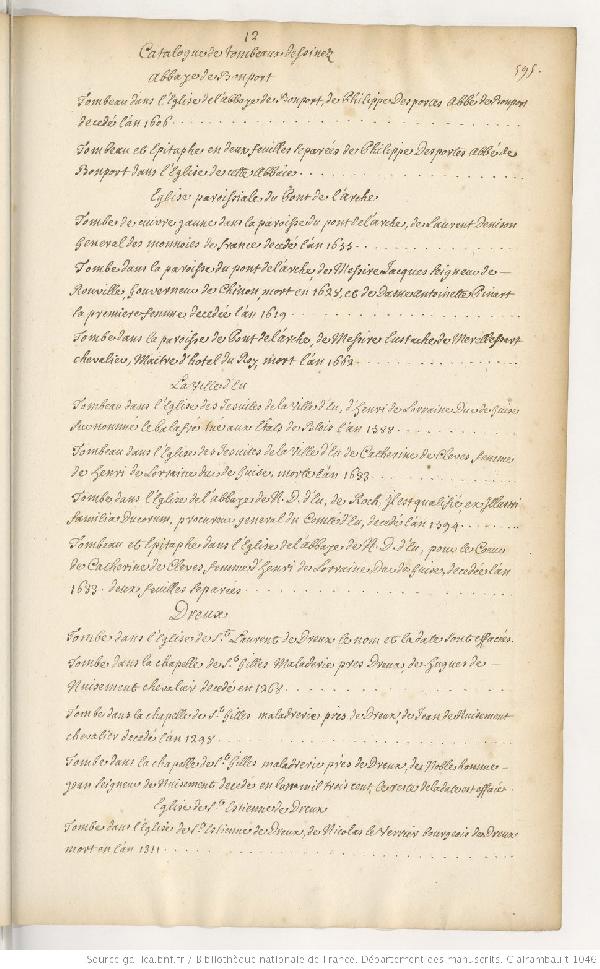 12
595.
Catalogue de tombeaux dessinez
Abbaye de Bonport
Tombeau dans l'Eglise de l'abbaye de Bonport, de Philippe Desportes Abbé de Bonport
decedé l'an 1606
Tombeau et Epitaphe en deux feuilles separées de Philippe Desportes Abbé de
Bonport dans l'Eglise de cette Abbaie
Eglise paroissiale du Pont de l'arche
Tombe de cuivre jaune dans la paroisse du pont de l'arche, de Laurent Denison
General des monnoies de France decedé l'an
Tombe dans la paroisse du pont de l'arche, de Messire Jacques seigneur de
Rouville, Gouverneur de Chinon, mort en 1628, et de Dame Antoinette Pinart
la premiere femme decedée l'an 1619
Tombe dans la paroisse de Pont de l'arche, de Messire Eustache de
chevalier, Maitre d'hotel du Roy, mort l'an 1663
La Ville d'Eu
Tombeau dans l'Eglise des Jesuites de la Ville d'Eu, d'Henri de Lorraine Duc de Guise
surnommé le balafré tué aux Etats de Blois l'an 1588
Tombeau dans l'Eglise des Jesuites de la Ville d'Eu de Catherine de Cleves, femme
de Henri de Lorraine duc de Guise, morte l'an 1633
Tombe dans l'Eglise de l'abbaye de N. D. d'Eu, de Roch, Il est qualifié, ex Illustri
familia Ducorum, procureur general du Comté d'Eu, decedé l'an 1594
Tombeau et Epitaphe dans l'Eglise de l'abbaye de N. D. d'Eu, pour le Coeur
de Catherine de Cleves, femme d'Henri de Lorraine Duc de Guise, decedée l'an
1633. deux feuilles separées
Dreux
Tombe dans l'Eglise de St. Laurent de Dreux le nom et la date sont effacées.
Tombe dans la chapelle de St. Gilles Maladerie pres Dreux, de Hugues de
Nuisement chevalier decedé en 1268
Tombe dans la chapelle de St. Gilles maladrerie pres de Dreux, de Jean de Nuisement
chevalier decedé l'an 1298
Tombe dans la chapelle de St. Gilles maladrerie près de Dreux, de Noble homme
Jean seigneur de Nuisement decedé en l'an mil trois cent, le reste de la date est effacée
Eglise de St. Estienne de Dreux
Tombe dans l'Eglise de St. Estienne de Dreux, de Nicolas le Verrier bourgeois de Dreux
mort en l'an 1311
Source gallica.bnf.fr / Bibliothèque nationale de France. Département des manuscrits. Clairambault 1046